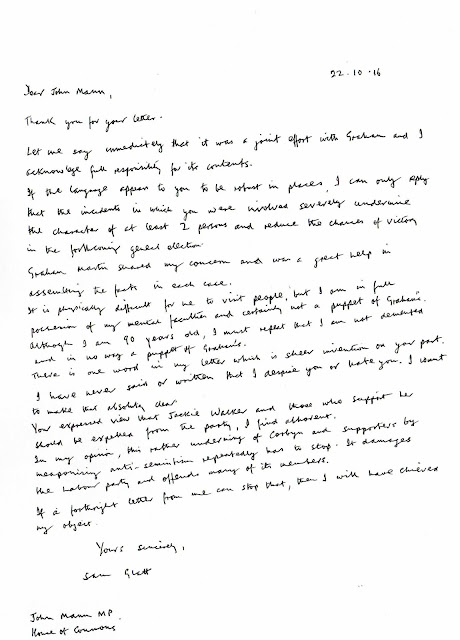 22.10.16
Dear John Mann,
Thank you for your letter.
Let me say immediately that it was a joint effort with Graham and I
acknowledge full responsibility for its contents.
If the language appear to you to be robust in places, I can only reply
that the incidents in which you were involved severely undermine
the character of at least 2 persons and reduce the chances of victory
in the forthcoming general election.
Graham Martin shared my concern and was a great help in
assembling the facts in each case.
It is physically difficult for me to visit people, but I am in full
possession of my mental faculties and certainly not a puppet of Graham's.
Although I am 90 years old, I must repeat that I am not demented
and in no way a puppet of Graham's.
There is one word in my letter which is sheer invention on your part.
I have never said or written that I despise you or hate you. I want
to make that absolutely clear.
You expressed view that Jackie Walker and those who support her
should be expelled from the party, I find abhorrent.
In my opinion, this rather undermining of Corbyn and supporters by
weaponising anti-semitism repeatedly has to stop. It damages
the Labour party and offends many of its members.
If a forthright letter from me can stop that, then I will have achieved
my object.
Yours sincerely,
Sam Glatt
John Mann MP.
House of Commons